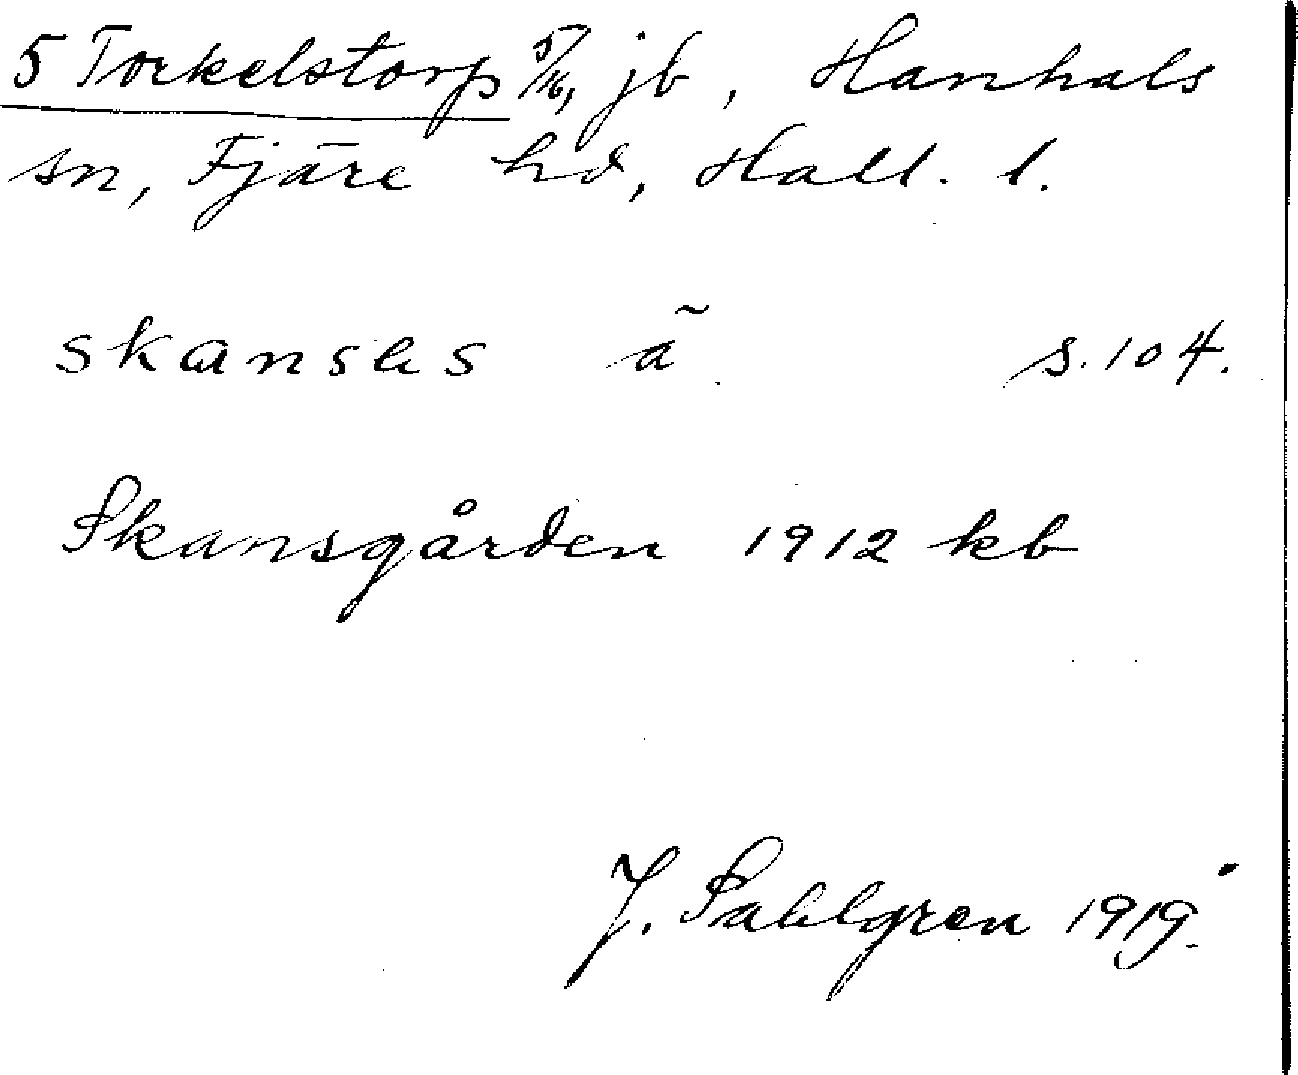 5 Torkelstorp 5/16, jb, Hanhals
sn, Fjäre hd, Hall. l.
skansas ã s. 104.
Skansgården 1912 kb
J. Sahlgren 1919.